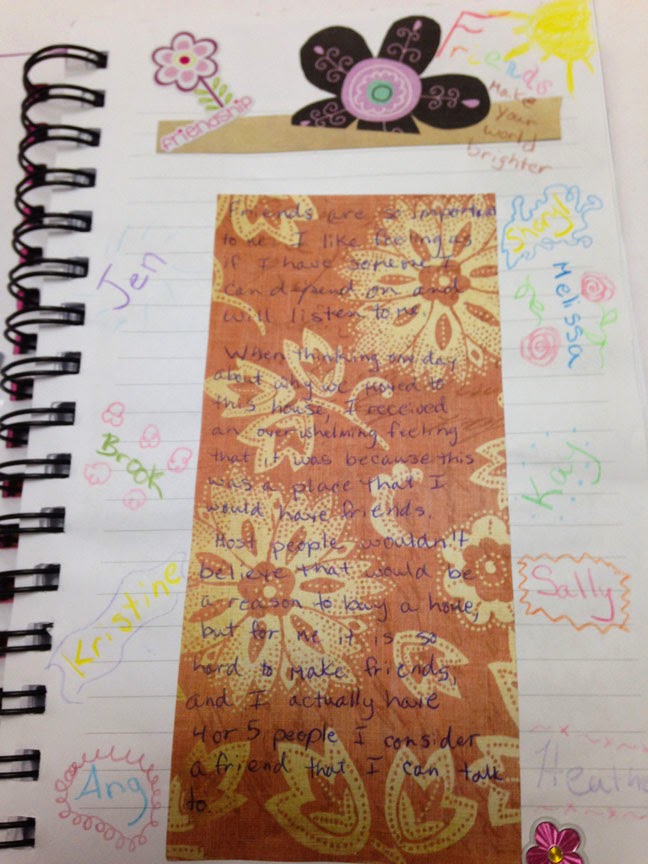 friendship
Friends
Make
your
world
brighter
Friends are so important
to me. I like feeling as
if I have someone I
can depend on and
will listen to me
When thinking one day
about why we moved to
this house, I received
an overwhelming feeling
that it was because this
was a place that I
would have friends.
Most people wouldn't
believe that would be
a reason to buy a home,
but for me it is so
hard to make friends,
and I actually have
4 or 5 people I consider
a friend that I can talk
to
Jen
Brook
Kristine
Ang
Sheryl
Melissa
Kay
Sally
Heathe